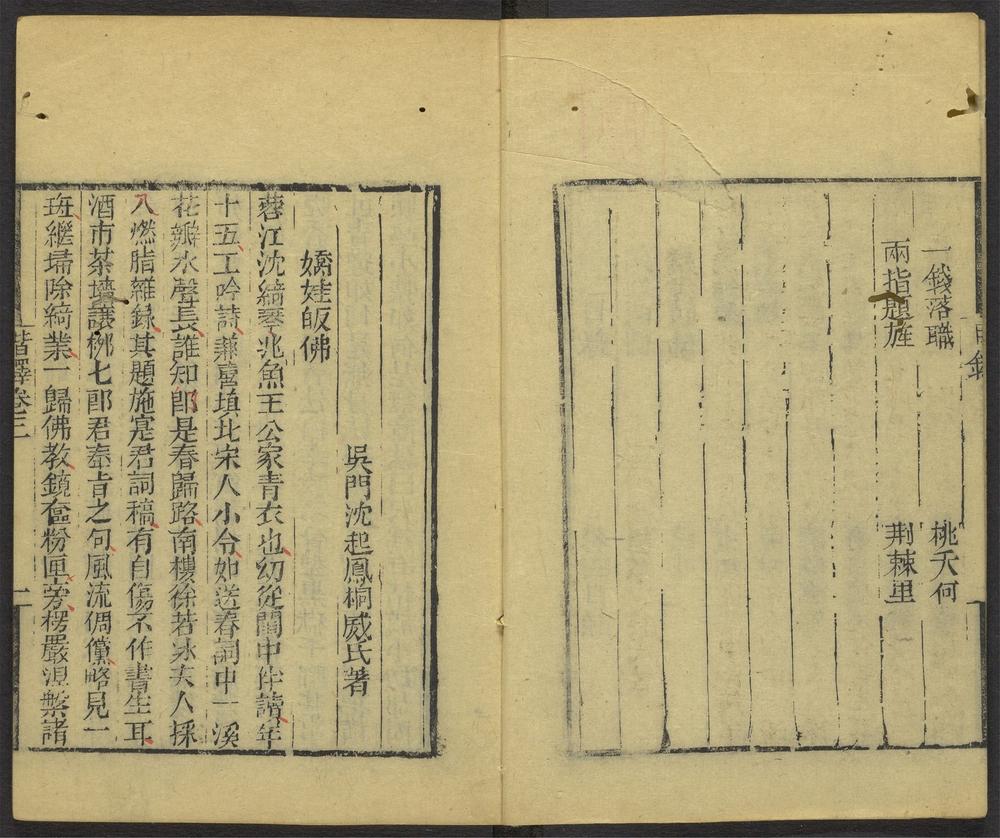 目錄
一錢落職
桃夭何
兩指題旌
荆棘里
吳門沈起鳳桐威氏著
嬌娃皈佛
蓉江沈綺琴兆魚王公家青衣也幼從閨中伴讀年
十五工吟詩兼喜填北宋人小令如送春詞中一溪
花瓣水聲長誰知卽是春歸路南樓徐若冰夫人採
入燃脂雜錄其題施寔君詞稿有自傷不作書生耳
酒市茶壚議柳七郎君秦肯之句風流倜儻略見一
斑繼埽除綺業一歸佛教鏡奩粉匣旁楞嚴涅槃諸
諧鐸卷三
一